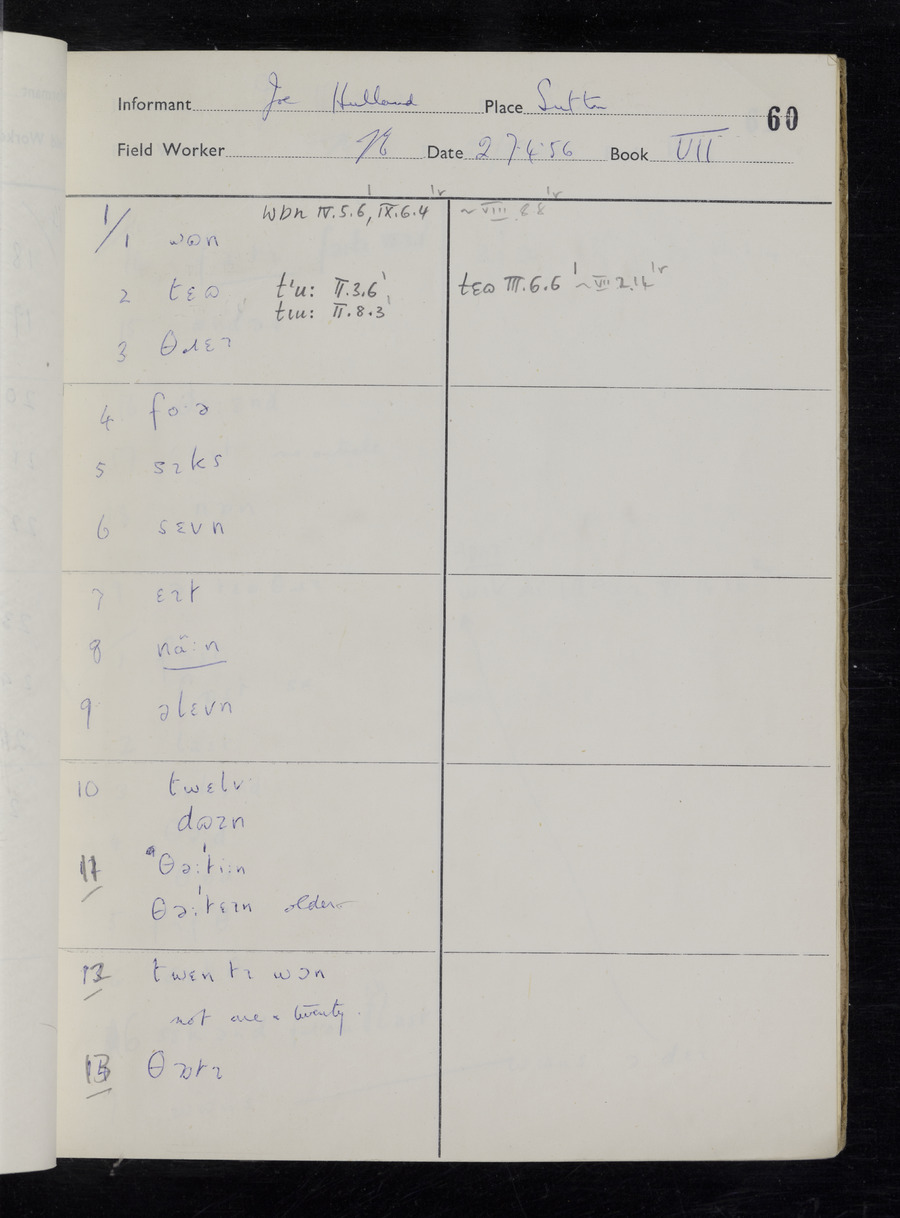 Informant Joe Hulland Place Sutton 60
Field Worker Date 27.4.56 Book VII
wɒn IV.5.6, IX.6.4 ~ VIII.8.8
1/1 wɷn
2 tɛɷ t'u: II.3.6 tɛɷ III.6.6 ~ VII.2.14
tɩu: II.8.3
3
4 fo·ə
5 sɩks
6 sɛvn
7 ɛɩt
8 nä:n
9 əlɛvn
10 twɛlv
dɷzn
11 θə:ti:n
θə:tɛɩn older
12 twɛntɩ wɔn
not one & twenty.
13